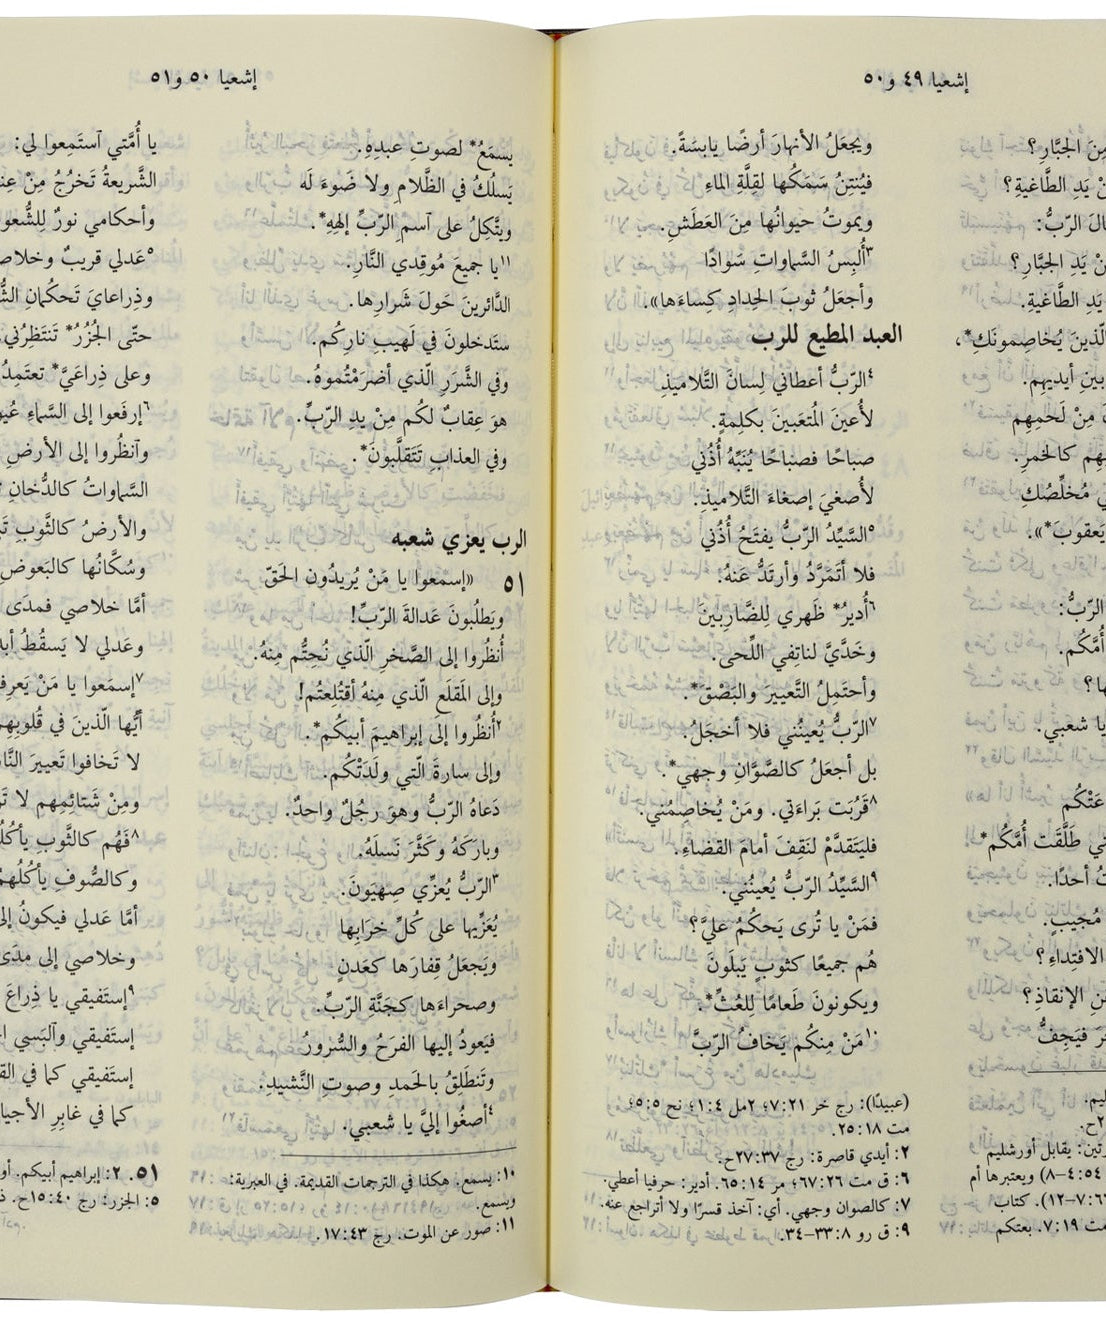 إشعيا ٤٩ و٥٠
مِنَ الجَبَّارِ؟
مِنْ يَدِ الطَّاغيةِ؟
قالَ الرّبُّ:
مِنْ يَدِ الجَبَّارِ؟
يَدِ الطَّاغيةِ.
الّذينَ يُخاصِمونَكِ*،
بينِ أيديهِم.
مِنْ لَحمِهِم
كالخمرِ.
مُخلِّصُكِ
يَعقوبَ*».
الرّبُّ:
أُمَّكُم.
يا شعبي.
طَلَّقَت أُمَّكُم*
أحدًا.
مُجيبٍ.
الافتِداءِ؟
الإنقاذِ؟
فيَجِفُّ
ويجعَلُ الأنهارَ أرضًا يابسَةً.
فيُنتِنُ سَمَكُها لقِلَّةِ الماءِ
ويموتُ حيوانُها مِنَ العَطَشِ.
٣أُلبِسُ السَّماواتِ سَوادًا
وأجعَلُ ثوبَ الحِدادِ كِساءَها».
العبد المطيع للرب
٤الرّبُّ أعطاني لِسانَ التَّلاميذِ
لأُعينَ المُتعَبينَ بكلِمةٍ.
صباحًا فصباحًا يُنَبِّهُ أُذُني
لأُصغيَ إصغاءَ التَّلاميذِ.
٥السَّيِّدُ الرّبُّ يفتَحُ أُذُني
فلا أتمَرَّدُ وأرتَدُّ عَنهُ!
٦أُديرُ* ظَهري لِلضَّارِبينَ
وخَدَّيَّ لناتِفي اللِّحى.
وأحتَمِلُ التَّعييرَ والبَصْقَ*.
٧الرّبُّ يُعينُني فلا أخجَلُ.
بل أجعَلُ كالصَّوَّانِ وجهي*.
٨قَرُبَت بَراءَتي. ومَنْ يُخاصِمُني.
فليَتَقدَّمْ لنَقِفَ أمامَ القضاءِ.
٩السَّيِّدُ الرّبُّ يُعينُني.
فمَنْ يا تُرى يَحكُمُ عليَّ؟
هُم جميعًا كثوبٍ يَبلَونَ
ويكونونَ طَعامًا لِلعُثِّ*.
١٠مَنْ مِنكُم يَخافُ الرّبَّ
(عبيدًا): رج خر ٢١:٧؛ ٢مل ٤:١؛ نح ٥:٥؛
مت ١٨:٢٥.
٢: أيدي قاصرة: رج ٣٧:٢٧ح.
٦: ق مت ٢٦:٦٧؛ مر ١٤:٦٥. أدير: حرفيا أعطي.
٧: كالصوان وجهي. أي: آخذ قسرًا ولا أتراجع عنه.
٩: ق رو ٨:٣٣-٣٤.
يقابل أورشليم
ويعتبرها أم
كتاب
بعتكم
إشعيا ٥٠ و٥١
يسمَعُ* لصوتِ عبدِهِ.
يَسلُكُ في الظَّلامِ ولا ضَوءَ لَه
ويتَّكِلُ على آسمِ الرّبِّ إلهِهِ*.
١١يا جميعَ مُوقدي النَّارِ.
الدَّائرينَ حَولَ شَرارِها.
ستَدخلونَ في لَهيبِ نارِكُم.
وفي الشَّرَرِ الّذي أضرَمْتُموهُ.
هوَ عِقابٌ لكُم مِنْ يدِ الرّبِّ.
وفي العذابِ تَتَقلَّبونَ*.
الرب يعزي شعبه
٥١ «إسمعوا يا مَنْ يُريدُون الحَقّ
ويَطلُبونَ عَدالةَ الرّبِّ!
أُنظُروا إلى الصَّخرِ الّذي نُحِتُّم مِنهُ.
وإلى المَقلَعِ الّذي مِنهُ أقتُلِعتُم!
٢أُنظُروا إلى إبراهيمَ أبيكُم*.
وإلى سارةَ الّتي ولَدَتْكُم.
دَعاهُ الرّبُّ وهوَ رجُلٌ واحدٌ.
وبارَكَهُ وكَثَّرَ نَسلَهُ.
٣الرّبُّ يُعزِّي صِهيَونَ.
يُعَزِّيها على كُلِّ خرَابِها
ويَجعَلُ قِفارَها كعَدنٍ
وصحراءَها كجَنَّةِ الرّبِّ.
فيَعودُ إليها الفرَحُ والسُّرورُ
وتَنطَلِقُ بالحَمدِ وصوتِ النَّشيدِ.
٤أصغُوا إليَّ يا شعبي.
١٠: يسمع. هكذا في الترجمات القديمة. في العبرية:
ويسمع.
١١: صور عن الموت. رج ٤٣:١٧.
يا أُمَّتي آستَمِعوا لي:
الشَّريعةُ تَخرُجُ مِنْ
وأحكامي نورٌ
٥عَدلي قريبٌ
وذِراعايَ تَحكُمانِ
حتّى الجُزُرُ* تَنتَظِرُني
وعلى ذِراعَيَّ*
٦إرفَعوا إلى السَّماءِ
وآنظُروا إلى الأرضِ
السَّماواتُ كالدُّخانِ
والأرضُ كالثَّوبِ
وسُكَّانُها كالبَعوضِ
أمَّا خلاصي فمدَى
وعَدلي لا يَسقُطُ
٧إسمَعوا يا مَنْ
أيُّها الّذينَ في
لا تَخافوا تَعييرَ
ومِنْ شَتائِمِهِم لا
٨فهُم كالثَّوبِ
وكالصُّوفِ
أمَّا عَدلي فيكونُ
وخلاصي إلى مدَى
٩إستَفيقي يا ذِراعَ
إستَفيقي وآلبَسي
إستَفيقي كما في
كما في غابِرِ
٥١. ٢: إبراهيم أبيكم.
٥: الجزر: رج ٤٠:١٥ح.